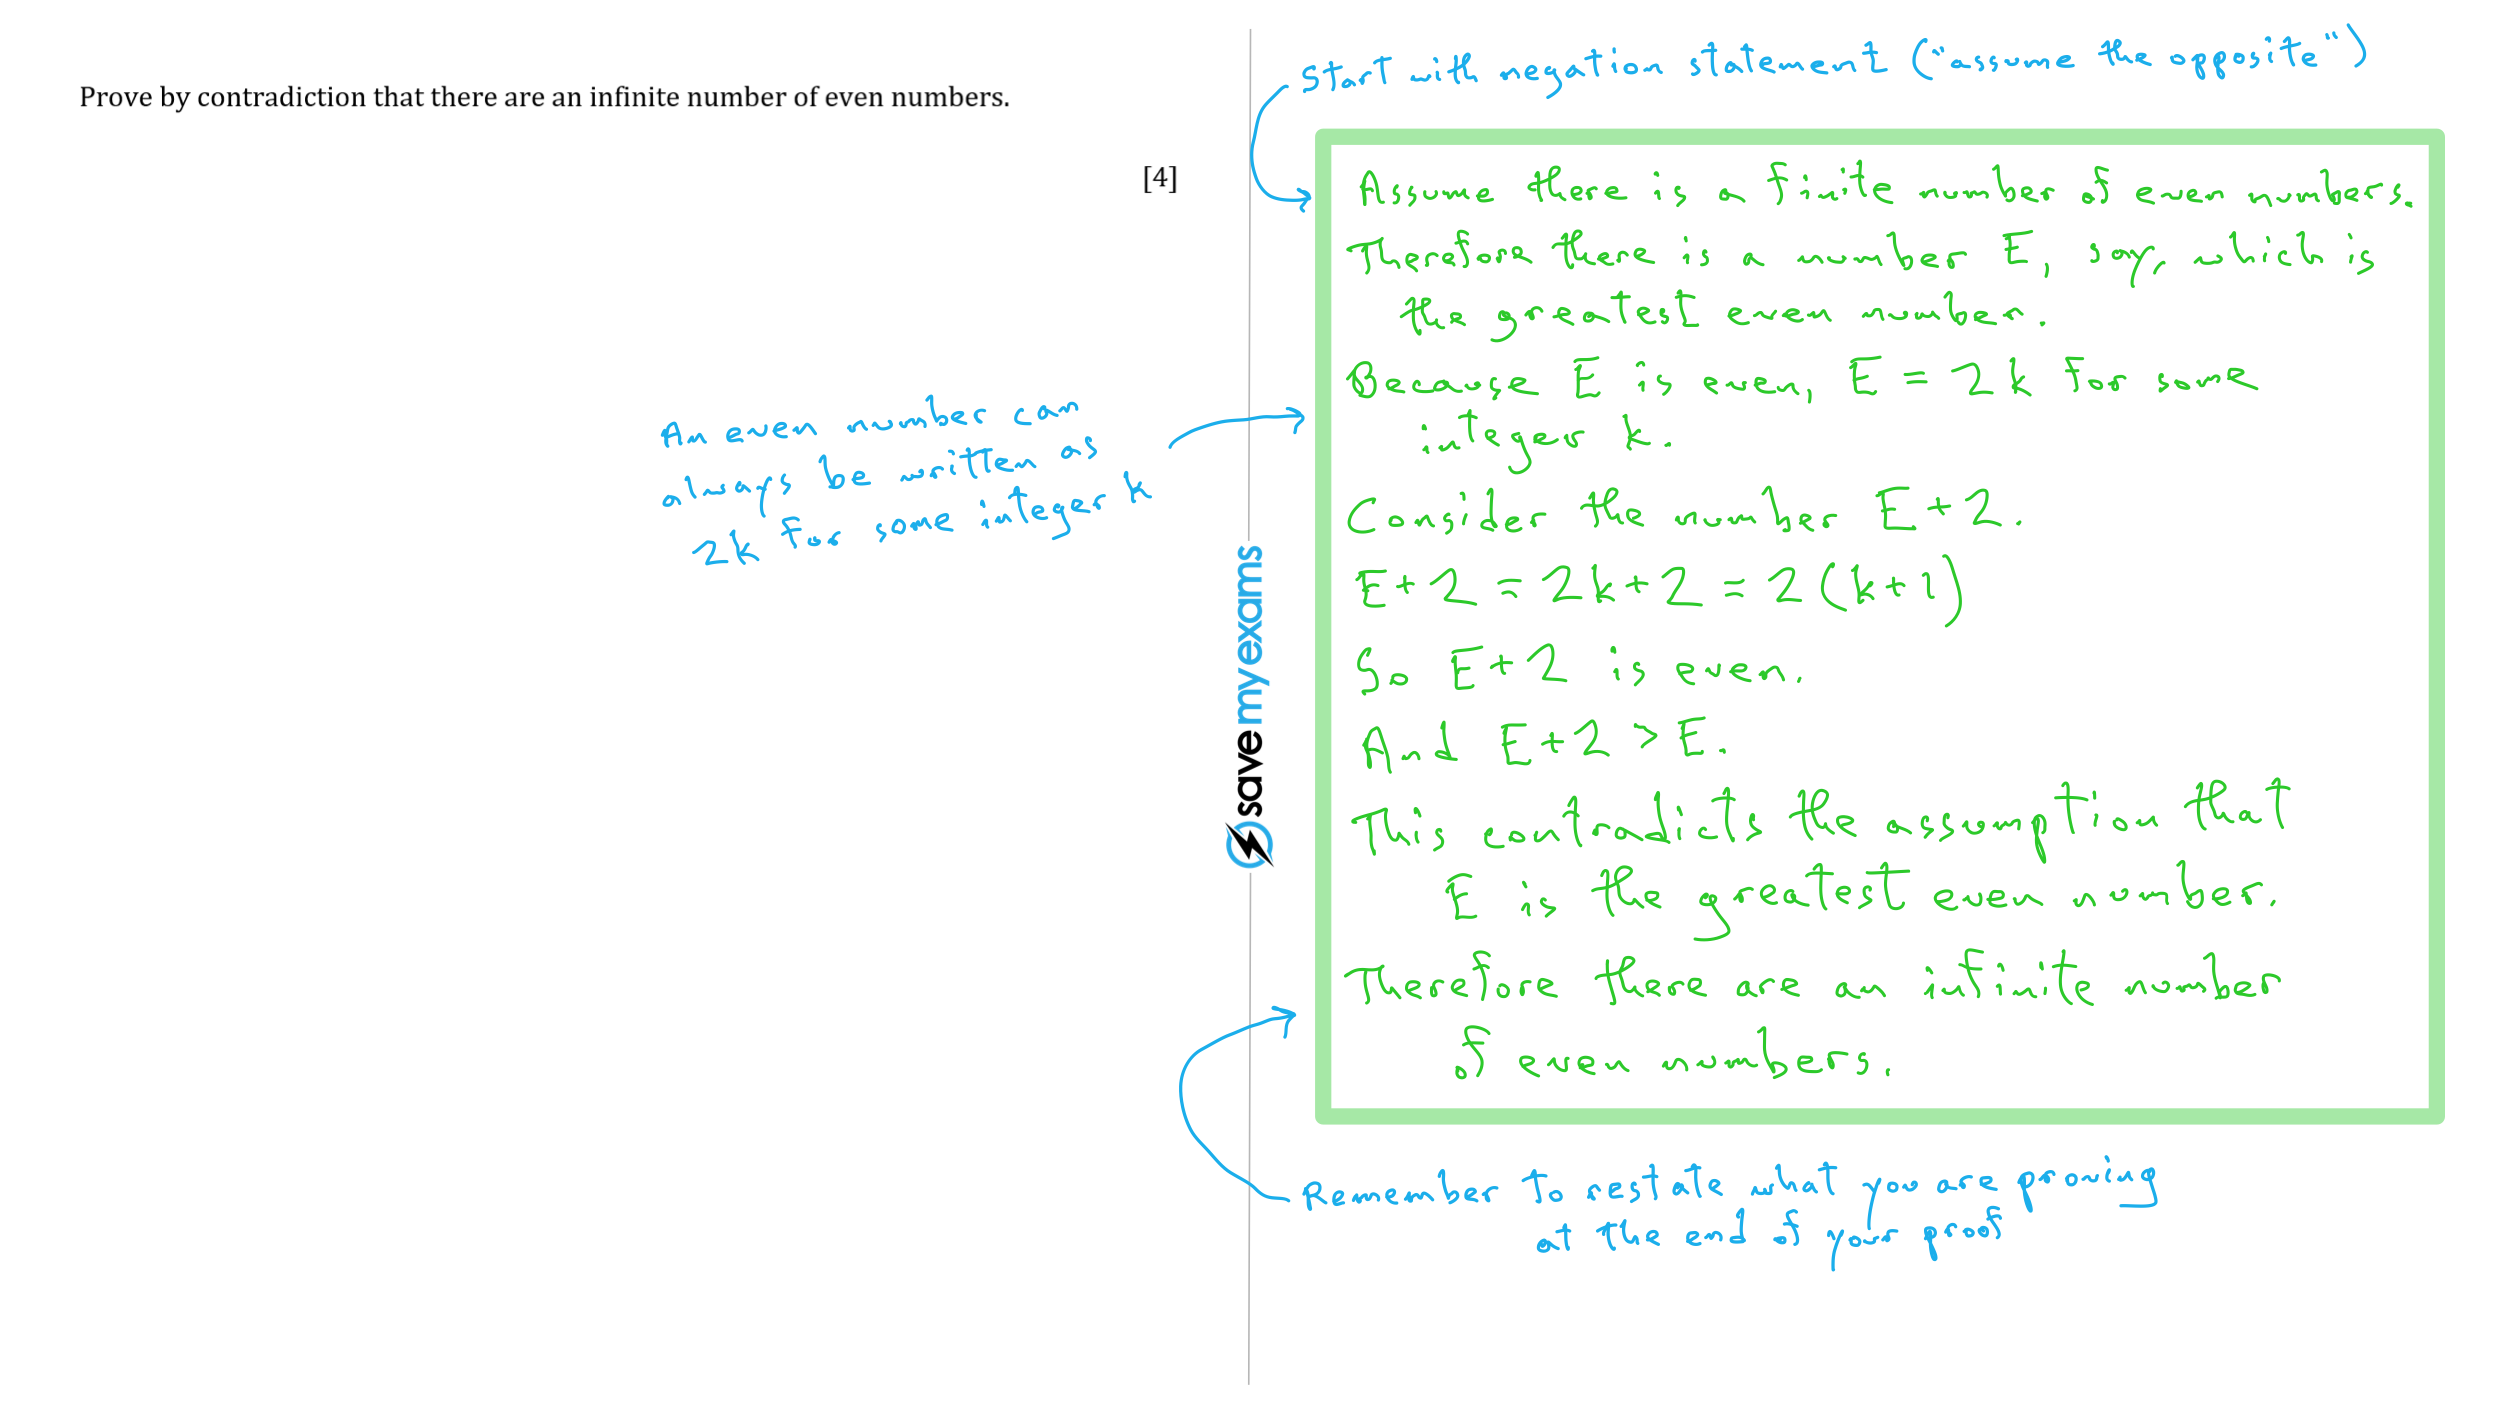 Prove by contradiction that there are an infinite number of even numbers.
[4]
An even number can
always be written as
2k for some integer k
save my exams
Start with negation statement ("assume the opposite")
Assume there is a finite number of even numbers.
Therefore there is a number E, say, which is
the greatest even number.
Because E is even, E = 2k for some
integer k.
Consider the number E+2.
E+2 = 2k+2 = 2(k+1)
So E+2 is even.
And E+2 > E.
This contradicts the assumption that
E is the greatest even number.
Therefore there are an infinite number
of even numbers.
Remember to restate what you are proving
at the end of your proof